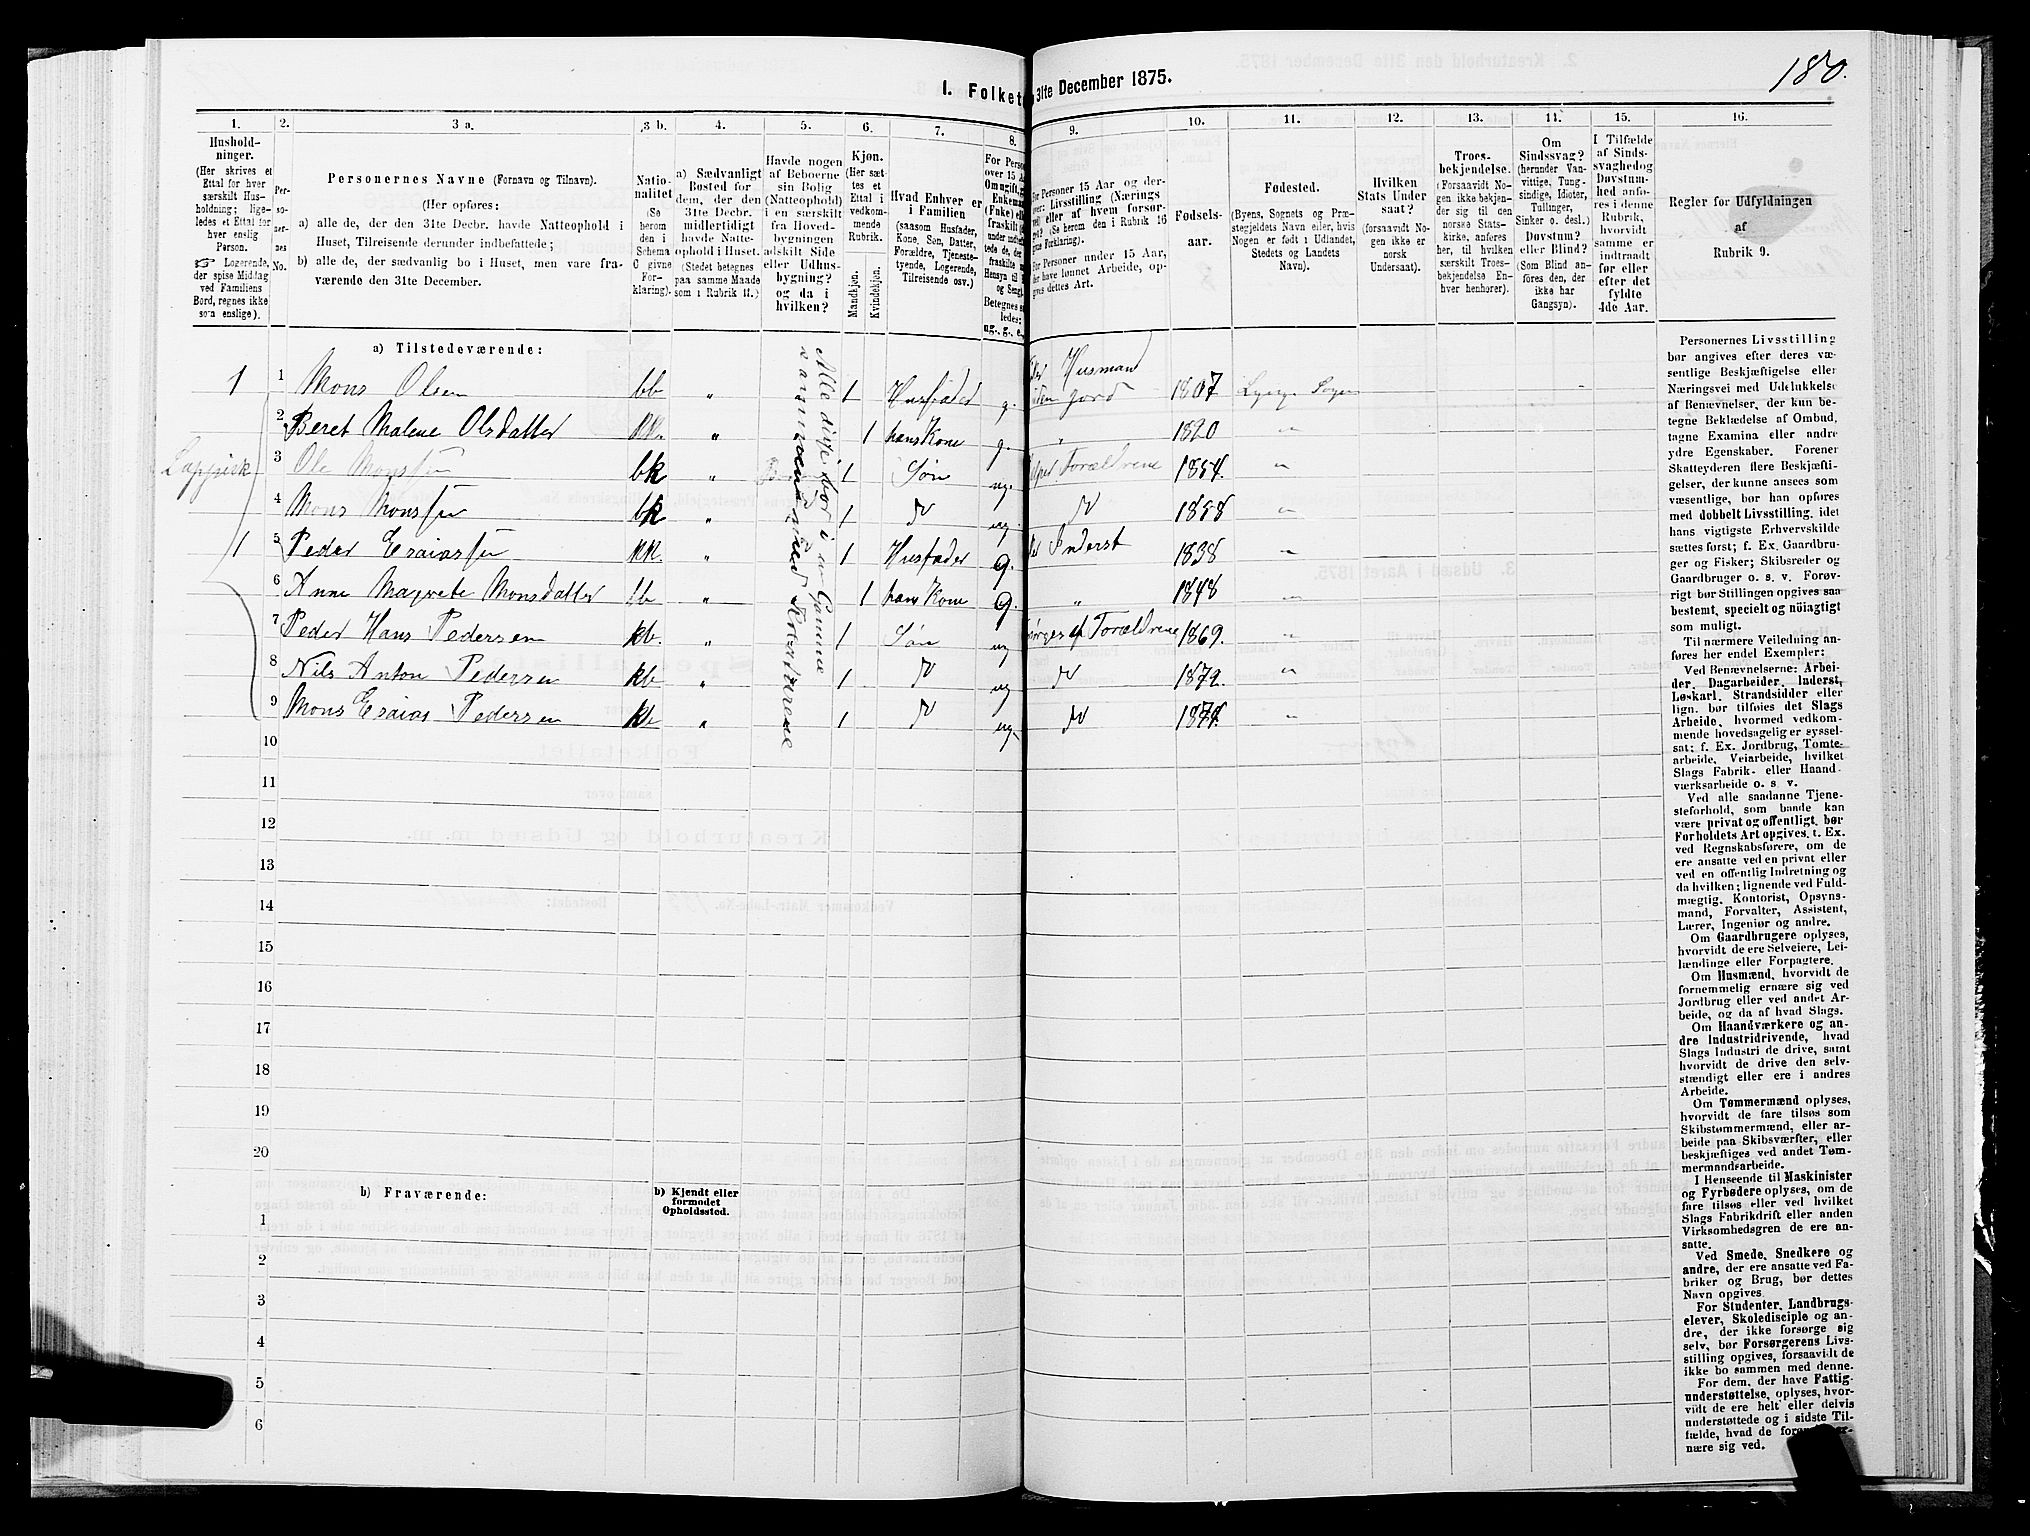 180.
I. Folket
31te December 1875.
1. 2. 3 a. 3 b. 4. 5. 6. 7. 8. 9. 10. 11. 12. 13. 14. 15. 16.
Hushold-
ninger.
(Her skrives et
Ettal for hver
særskilt Hus-
holdning; lige-
ledes et Ettal for
hver enslig
Person.
Logerende,
der spise Middag
ved Familiens
Bord, regnes ikke
som enslige).
Per-
so-
ner-
nes
No.
Personernes Navne (Fornavn og Tilnavn).
(Her opføres:
a) alle de, der den 31te Decbr. havde Natteophold i
Huset, Tilreisende derunder indbefattede;
b) alle de, der sædvanlig bo i Huset, men vare fra-
værende den 31te December.
Natio-
nalitet
(Se
herom
den i
Schema
C givne
For-
klaring).
a) Sædvanligt
Bosted for
dem, der den
31te Decbr.
midlertidigt
havde Natte-
ophold i Huset.
(Stedet betegnes
paa samme Maade
som i Rubrik 11.)
Havde nogen
af Beboerne
sin Bolig
(Natteophold)
i en særskilt
fra Hoved-
bygningen
adskilt Side
eller Udhus-
bygning?
og da i
hvilken?
Kjøn.
(Her sæt-
tes et
Ettal i
vedkom-
mende
Rubrik.
Mandkjøn.
Kvindekjøn.
Hvad Enhver er
i Familien
(saasom Husfader,
Kone, Søn, Datter,
Forældre, Tjeneste-
tyende, Logerende,
Tilreisende osv.)
For Perso
over 15 A
Om ugift, g
Enkema
(Fnke) ell
fraskilt
Betegnes s
ledes:
ug., g., e.,
For Personer 15 Aar og der-
over: Livsstilling (Nærings
vei) eller af hvem forsør-
get? (Se herom den i Rubrik 16
givne Forklaring).
For Personer under 15 Aar,
der have lønnet Arbeide, op-
gives dettes Art.
Fødsels-
aar.
Fødested.
(Byens, Sognets og Præ-
stegjeldets Navn eller, hvis
Nogen er født i Udlandet,
Stedets og Landets
Navn).
Hvilken
Stats Under
saat?
(forsaavidt No-
gen ikke er
norsk
Undersaat).
Troes-
bekjendelse.
(Forsaavidt No-
gen ikke bekjen-
der sig til den
norske Stats-
kirke, anføres
her, til hvilken
særskilt Troes-
bekjendelse En-
hver henhører).
Om
Sindssvag?
(herunder Van-
vittige, Tung-
sindige, Idioter,
Tullinger,
Sinker o. desl.)
Døvstum?
eller Blind?
(Som Blind an-
føres den, der
ikke har
Gangsyn).
I Tilfælde
af Sinds-
svaghed og
Døvstum-
hed anfø-
res i denne
Rubrik,
hvorvidt
samme er
indtraadt
før eller
efter det
fyldte
4de Aar.
Regler for Udfyldningen
af
Rubrik 9.
a) Tilstedeværende:
1 1 Mons Olsen bb " 1 Husfader g. Husmand uden Jord 1807 Lyngs Sogn
2 Beret Malene Olsdatter kk. " 1 hans Kone g. " 1820 "
Lappisk 3 Ole Monssen bk " 1 Søn ug. Forældrene 1854. "
4 Mons Monssen bk " 1 " ug. " 1858 "
1 5 Peder Esaiassen kk. " 1 Husfader g. Inderst 1838 "
6 Anne Magrete Monsdatter bb " 1 hans Kone g. " 1848 "
7 Peder Hans Pedersen kb. " 1 Søn ug Forældrene 1869. "
8 Nils Anton Pedersen kb " 1 " ug " 1872. "
9 Mons Esaias Pedersen kb " 1 " ug. " 1874. "
Alle disse bor i en Gamme
sammen med Kreaturene
10
11
12
13
14
15
16
17
18
19
20
b) Fraværende:
b) Kjendt eller
formodet
Opholdssted.
1
2
3
4
5
6
Personernes Livsstilling
bør angives efter deres væ-
sentlige Beskjæftigelse eller
Næringsvei med Udelukkelse
af Benævnelser, der kun be-
tegne Beklædelse af Ombud,
tagne Examina eller andre
ydre Egenskaber. Forener
Skatteyderen flere Beskjæfti-
gelser, der kunne ansees som
væsentlige, bør han opføres
med dobbelt Livsstilling, idet
hans vigtigste Erhvervskilde
sættes først; f. Ex. Gaardbru-
ger og Fisker; Skibsreder og
Gaardbruger o. s. v. Forøv-
rigt bør Stillingen opgives saa
bestemt, specielt og nøiagtigt
som muligt.
Til nærmere Veiledning an-
føres her endel Exempler:
Ved Benævnelserne: Arbei-
der, Dagarbeider, Inderst,
Løskarl, Strandsidder eller
lign. bør tilføies det Slags
Arbeide, hvormed vedkom-
mende hovedsagelig er syssel-
sat; f. Ex. Jordbrug, Tomte-
arbeide, Veiarbeide, hvilket
Slags Fabrik- eller Haand-
værksarbeide o. s. v.
Ved alle saadanne Tjene-
steforhold, som baade kan
være privat og offentligt, bør
Forholdets Art opgives, t. Ex.
ved Regnskabsførere, om de
ere ansatte ved en privat eller
ved en offentlig Indretning og
da hvilken; lignende ved Fuld-
mægtig, Kontorist, Opsyns-
mand, Forvalter, Assistent,
Lærer, Ingeniør og andre.
Om Gaardbrugere oplyses,
hvorvidt de ere Selveiere, Lei-
lændinge eller Forpagtere.
Om Husmænd, hvorvidt de
fornemmelig ernære sig ved
Jordbrug eller ved andet Ar-
beide, og da af hvad Slags.
Om Haandværkere og an-
dre Industridrivende, hvad
Slags Industri de drive, samt
hvorvidt de drive den selv-
stændigt eller ere i andres
Arbeide.
Om Tømmermænd oplyses,
hvorvidt de fare tilsøs som
Skibstømmermænd, eller ar-
beide paa Skibsværfter, eller
beskjæftiges ved andet Tøm-
mermandsarbeide.
I Henseende til Maskinister
og Fyrbødere oplyses, om de
fare tilsøs eller ved hvilket
Slags Fabrikdrift eller anden
Virksomhedsgren de ere an-
satte.
Ved Smede, Snedkere og
andre, der ere ansatte ved Fa-
briker og Brug, bør dettes
Navn opgives.
For Studenter, Landbrugs-
elever, Skoledisciple og an-
dre, der ikke forsørge sig
selv, bør Forsørgerens Livs-
stilling opgives, forsaavidt de
ikke bo sammen med denne.
For dem, der have Fattig-
understøttelse, oplyses, hvor-
vidt de ere helt eller delvis
understøttede og i sidste Til-
fælde, hvad de forøvrigt er-
nære sig ved.